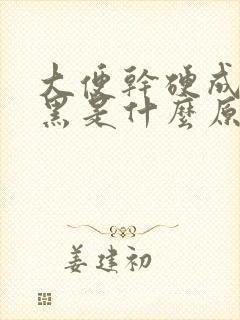 大便幹硬成
黑是什麼原
姜建初